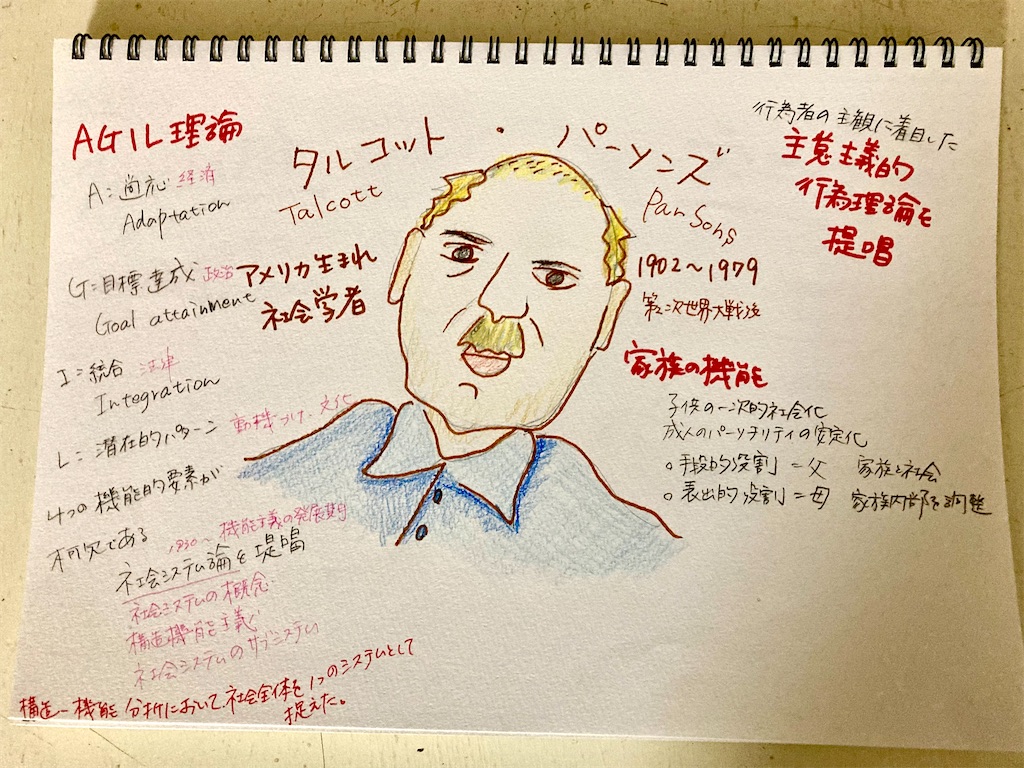 AGIL理論
A：適応 経済
Adaptation
G：目標達成 政治
Goal attainment
I：統合 法律
Integration
L：潜在的パターン 動機づけ、文化
4つの機能的要素が
不可欠である
1930〜機能主義の発展期
社会システム論を提唱
社会システムの概念
構造機能主義
社会システムのサブシステム
構造－機能分析において、社会全体を1つのシステムとして
捉えた。
タルコット・パーソンズ
Talcott Parsons
アメリカ生まれ
社会学者
1902〜1979
第二次世界大戦後
行為者の主観に着目した
主意主義的
行為理論を
提唱
家族の機能
子供の一次的社会化
成人のパーソナリティの安定化
○手段的役割＝父 家族と社会
○表出的役割＝母 家族内部を調整